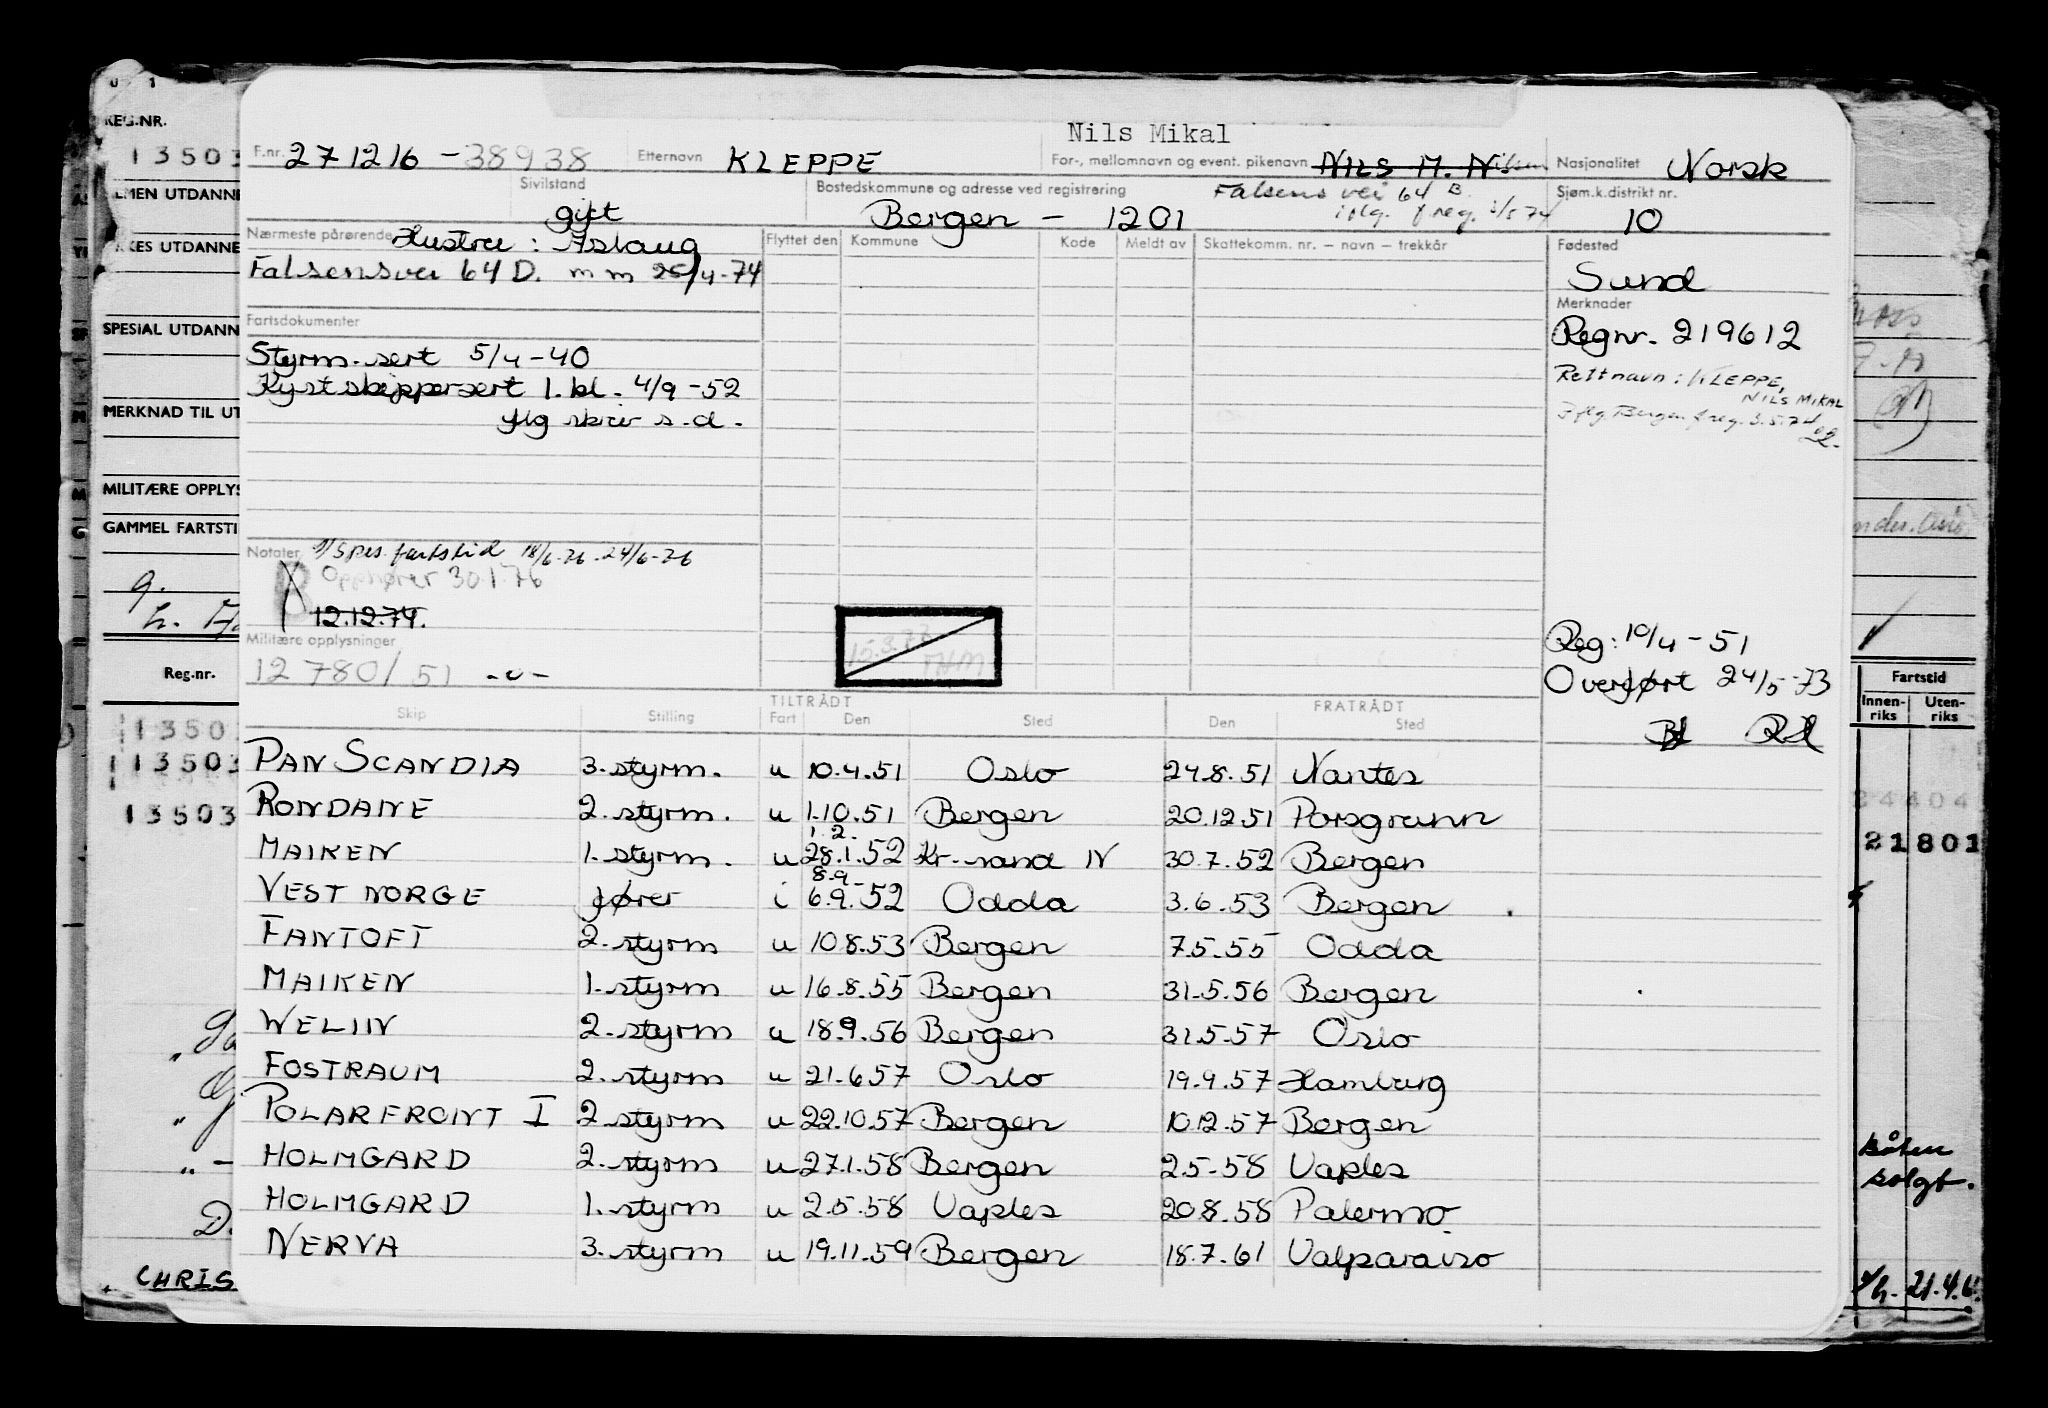 Nils Mikal
F.nr. 271216 - 38938 Etternavn KLEPPE For-, mellomnavn og event. pikenavn NILS M. Nilsen Nasjonalitet Norsk
Sivilstand gift Bostedskommune og adresse ved registrering Bergen - 1201 Falsens vei 64 B iflg. f.reg. Sjøm.k.distrikt nr. 10
Nærmeste pårørende Hustru : Aslaug
Falsensvei 64 D. m m /4-74
Flyttet den Kommune Kode Meldt av Skattekomm. nr. – navn – trekkår
Fødested
Sund
Merknader
Regnr. 219612
Rett navn : KLEPPE,
NILS MIKAL
Iflg. Bergen f.reg. 3.5.74
Fartsdokumenter
Styrm. sert 5/4-40
Kystskippersert 1. kl. 4/9-52
iflg skriv s.d.
Notater 1/ Spes. fartstid 18/6-76 - 24/6-76
B Opphører 30.1.76
12.12.74.
Militære opplysninger
12780/51 -o-
Reg: 10/4-51
Overført 24/5-73
TILTRÅDT FRATRÅDT
Skip Stilling Fart Den Sted Den Sted
PAN SCANDIA 3. styrm. u 10.4.51 Oslo 24.8.51 Nantes
RONDANE 2. styrm. u 1.10.51 Bergen 20.12.51 Porsgrunn
1.2.
MAIKEN 1. styrm. u 28.1.52 Kr.sand N 30.7.52 Bergen
8.9
VEST NORGE fører i 6.9.52 Odda 3.6.53 Bergen
FANTOFT 2. styrm u 10.8.53 Bergen 7.5.55 Odda
MAIKEN 1. styrm u 16.8.55 Bergen 31.5.56 Bergen
WELIIN 2. styrm u 18.9.56 Bergen 31.5.57 Oslo
FOSTRAUM 2. styrm u 21.6.57 Oslo 19.9.57 Hamburg
POLARFRONT I 2 styrm u 22.10.57 Bergen 10.12.57 Bergen
HOLMGARD 2. styrm u 27.1.58 Bergen 2.5.58 Naples
HOLMGARD 1. styrm u 2.5.58 Naples 20.8.58 Palermo
NERVA 3. styrm u 19.11.59 Bergen 18.7.61 Valparaiso
REG.NR.
13503
SPESIAL UTDANN
MERKNAD TIL UT
MILITÆRE OPPLYS
GAMMEL FARTSTI
Reg.nr.
13503
13503
13503
CHRIS
Fartstid
Innen-riks Uten-riks
21801
Båten
solgt.